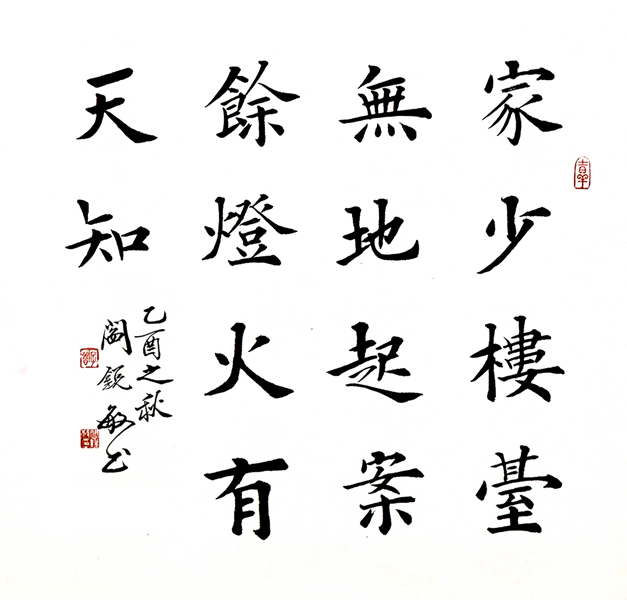 家少樓臺
無地起案
餘燈火有
天知
乙酉之秋
閻銳敏书